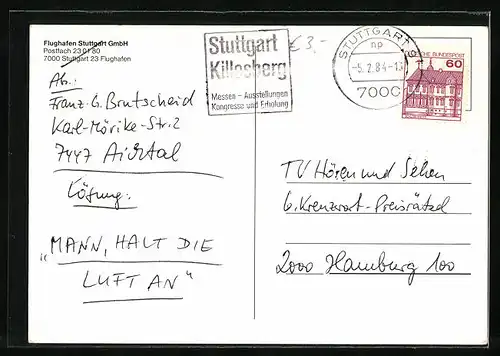 Flughafen Stuttgart GmbH
Postfach 23 01 80
7000 Stuttgart 23 Flughafen
Stuttgart
Killesberg
Messen – Ausstellungen
Kongresse und Erholung
€ 3,-
STUTTGART
np
-5.2.84-1
7000
BUNDESPOST
60
Ab.:
Franz-G. Brutscheid
Karl-Mörike-Str. 2
7447 Aichtal
Lösung:
„MANN, HALT DIE
LUFT AN“
TV Hören und Sehen
b. Kreuzwort-Preisrätzel
2000 Hamburg 100